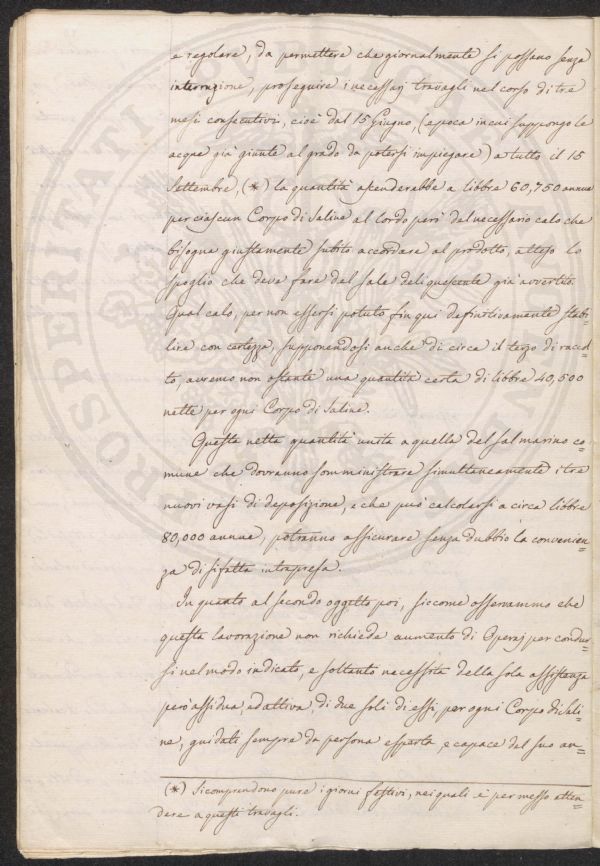 e regolare, da permettere che giornalmente si possano senza
interruzione, proseguire i necessarj travagli nel corso di tre
mesi consecutivi, cioè dal 15 Giugno, (epoca in cui suppongo le
acque già giunte al grado da potersi impiegare) a tutto il 15
Settembre, (*) la quantità ascenderebbe a libbre 60,750 annue
per ciascun Corpo di Saline al lordo però del necessario calo che
bisogna giustamente subito accordare al prodotto, atteso lo
spoglio che deve fare del sale deliquescente già avvertito.
Qual calo, per non essersi potuto fin qui definitivamente stabi=
lire con certezza, supponendosi anche di circa il terzo di raccol=
to, avremo non ostante una quantità certa di libbre 40,500
nette per ogni Corpo di Saline.
Questa netta quantità unita a quella del sal marino co=
mune che dovranno somministrare simultaneamente i tre
nuovi vasi di deposizione, e che può calcolarsi a circa libbre
80,000 annue, potranno assicurare senza dubbio la convenien=
za di sifatta intrapresa.
In quanto al secondo oggetto poi, siccome osservammo che
questa lavorazione non richiede aumento di Operaj per condur=
si nel modo indicato, e soltanto necessita della sola assistenza
però assidua, ed attiva, di due soli di essi per ogni Corpo di Sali=
ne, guidati sempre da persona esperta, e capace del suo an=
(*) Si comprendono pure i giorni festivi, nei quali è permesso atten=
dere a questi travagli.
PROSPERITATI